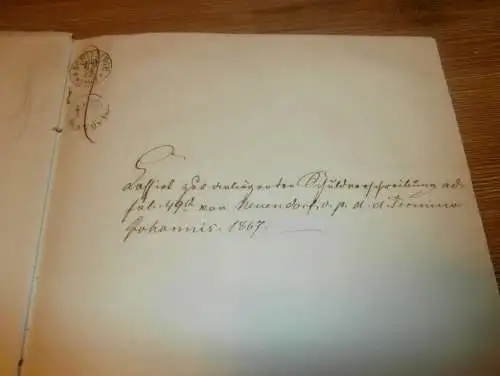 zur anliegenden Schuldverschreibung ad
fol. 49b von Neuendorf a. p. d. d. Termino
Johannis. 1867.